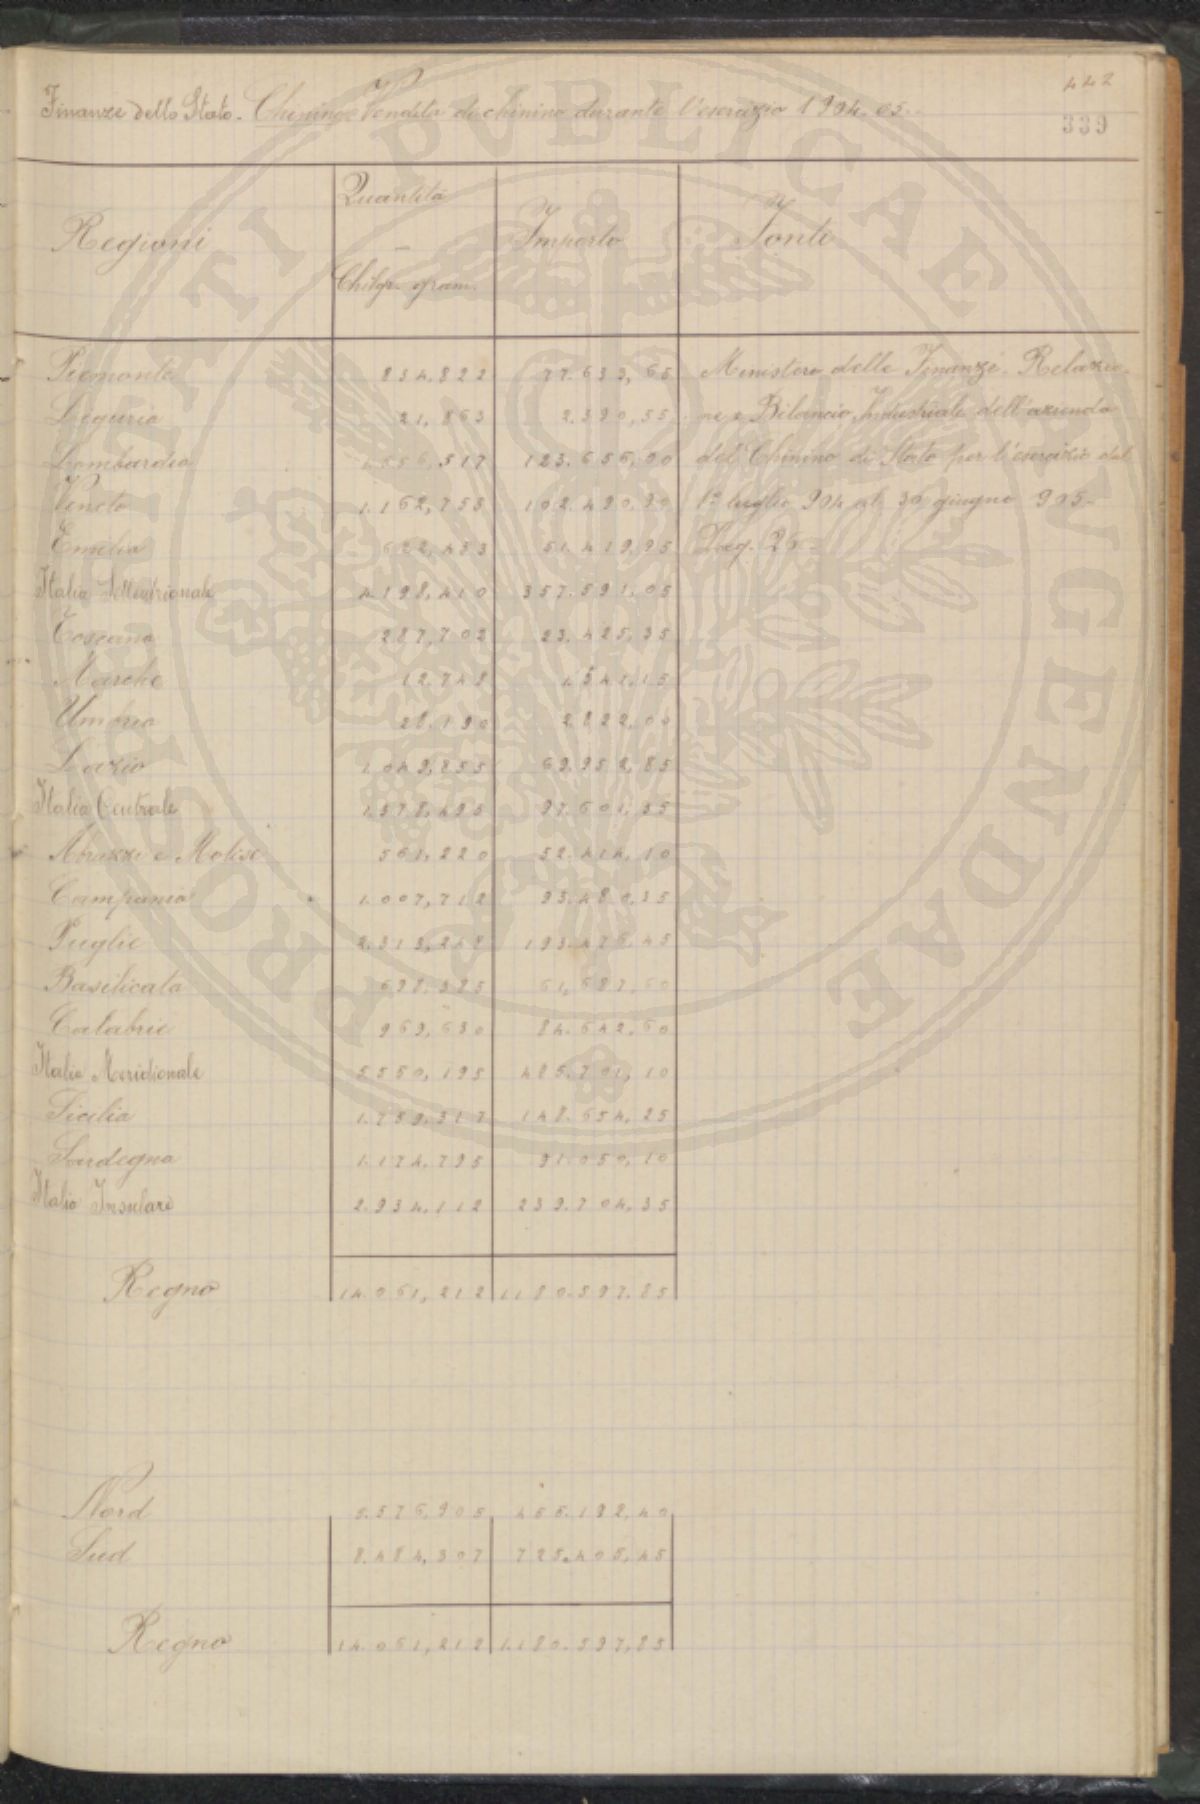 442
Finanze dello Stato. Chinino. Vendita di chinino durante l'esercizio 1904-05.
339
Regioni Quantità — Chilgr. gram. Importo Fonti
Piemonte 834.822 77.633,65 Ministero delle Finanze. Relazio-
Liguria 21,863 2.390,55 ne e Bilancio Industriale dell'azienda
Lombardia 1.556,517 123.656,00 del Chinino di Stato per l'esercizio dal
Veneto 1.162,755 102.490,90 1º luglio 904 al 30 giugno 905-
Emilia 622,453 51.419,95 Pag. 26
Italia Settentrionale 4.198,410 357.591,05
Toscana 287,702 23.425,35
Marche 12.748 1.541,15
Umbria 28.190 2.822,00
Lazio 1.049,855 69.952,85
Italia Centrale 1.378,495 97.601,35
Abruzzi e Molise 561,220 52.414,10
Campania 1.007,712 93.480,35
Puglie 2.313,248 193.476,45
Basilicata 698.385 61,687,60
Calabrie 969,630 84.642,60
Italia Meridionale 5.550,195 485.701,10
Sicilia 1.759,317 148.654,25
Sardegna 1.174,795 91.050,10
Italia Insulare 2.934,112 239.704,35
Regno 14.061,212 1.180.597.85
Nord 5.576,905 455.192,40
Sud 8.484,307 725.405,45
Regno 14.061,212 1.180.597,85
PROSPERITATI PUBLICAE AUGENDAE